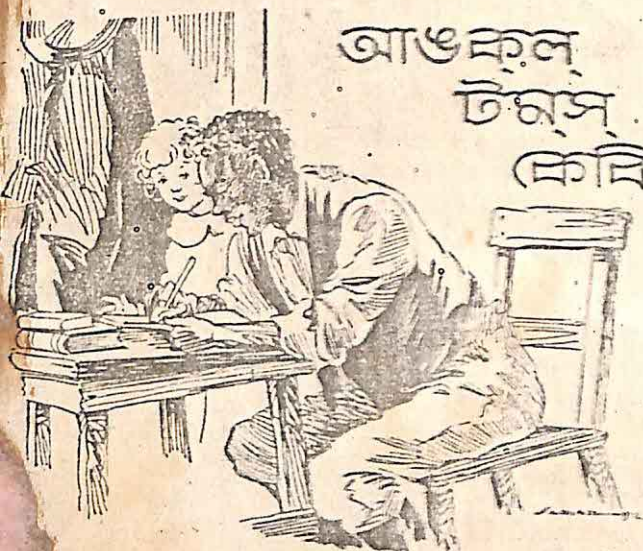 আঙক্‌ল্
টম্‌স্
কেবি